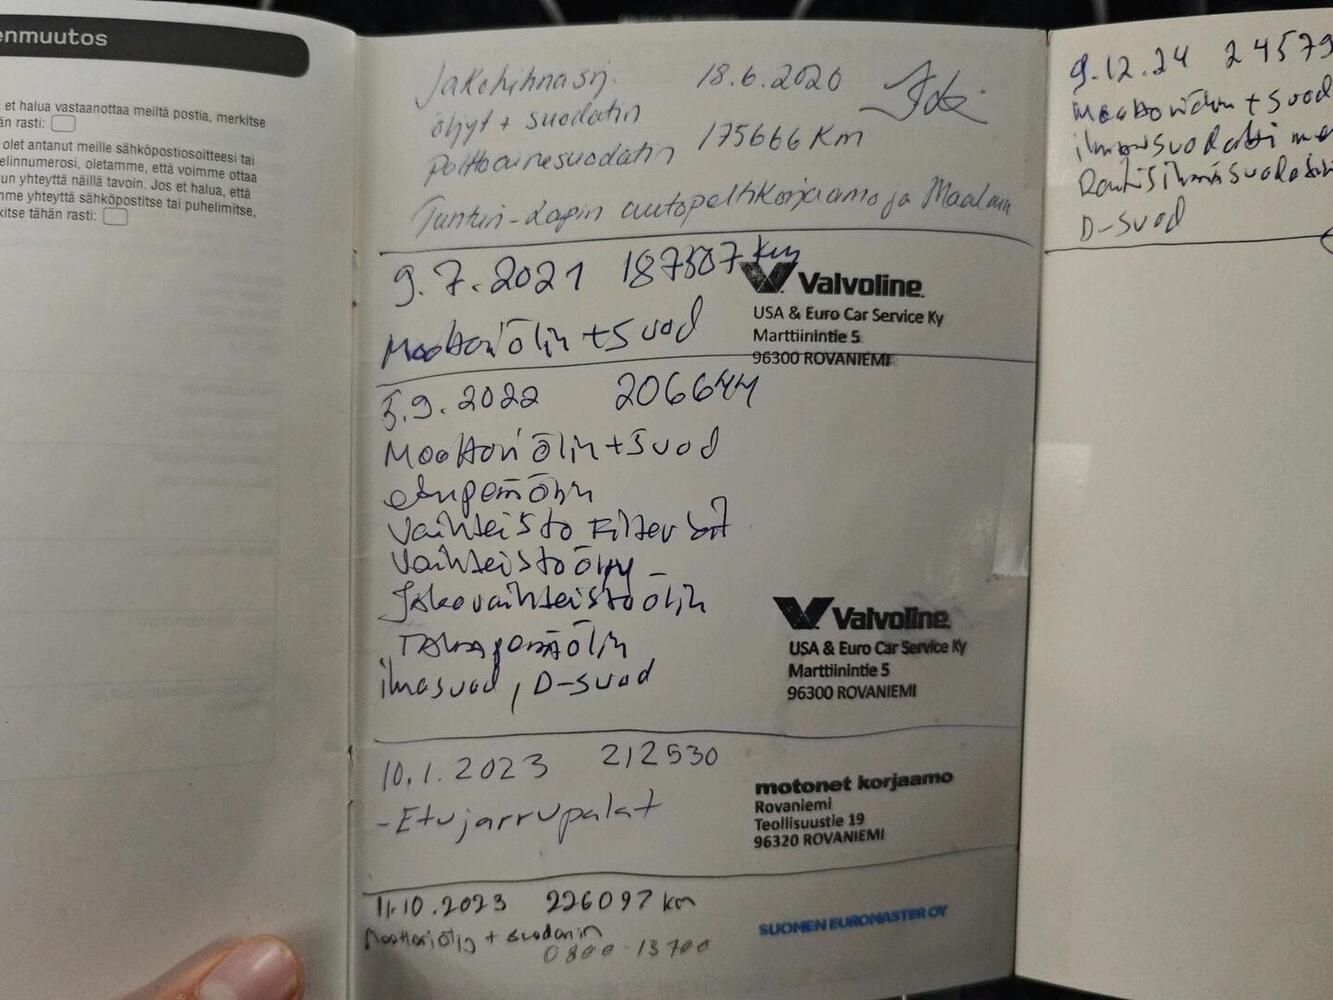 enmuutos
et halua vastaanottaa meiltä postia, merkitse
än rasti:
olet antanut meille sähköpostiosoitteesi tai
elinnumerosi, oletamme, että voimme ottaa
un yhteyttä näillä tavoin. Jos et halua, että
mme yhteyttä sähköpostitse tai puhelimitse,
kitse tähän rasti:
Jakohihnasrj. 18.6.2020
öljyt + suodatin
polttoainesuodatin 175666 Km
Tunturi-Lapin autopeltikorjaamo ja Maalaam
9.7.2021 187507 km
Moottoriöljy + Suod
Valvoline
USA & Euro Car Service Ky
Marttiinintie 5
96300 ROVANIEMI
5.9.2022 206644
Moottoriöljy + Suod
etuperäöljy
Vaihteisto Filter kit
Vaihteistoöljy
Jakovaihteistoöljy
Takaperäöljy
ilmasuod, D-suod
Valvoline
USA & Euro Car Service Ky
Marttiinintie 5
96300 ROVANIEMI
10.1.2023 212530
- Etujarrupalat
motonet korjaamo
Rovaniemi
Teollisuustie 19
96320 ROVANIEMI
11.10.2023 226097 km
Moottoriöljy + suodatin
0800-13700
SUOMEN EUROMASTER OY
9.12.24 24579
Moottoriöljy + Suod
ilmansuodatin
Raitisilmasuodatin
D-suod